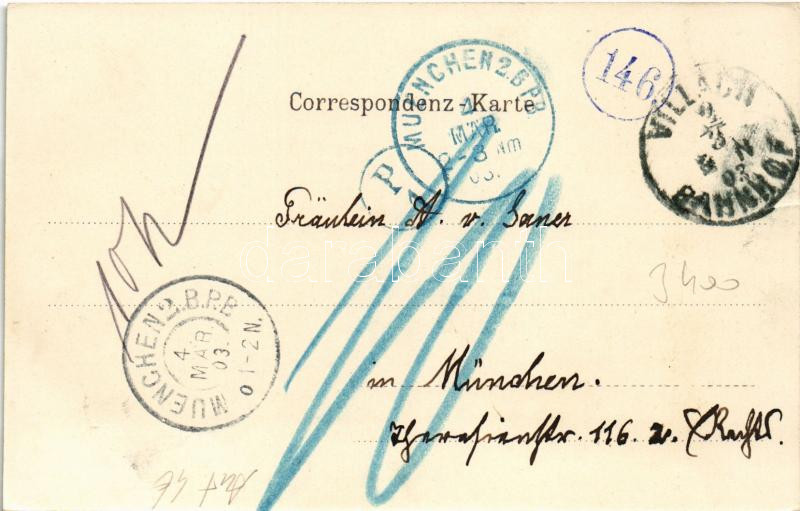 146
MUENCHEN 2.B.P.B.
4
MÄR
2-3 Nm
03.
VILLACH
BAHNHOF
Correspondenz-Karte
P
Fräulein A. v. Saner
darabanth
3400
MUENCHEN 2.B.P.B
4
MÄR
03.
1-2 N.
in München.
Theresienstr. 116. 2. Rechts.